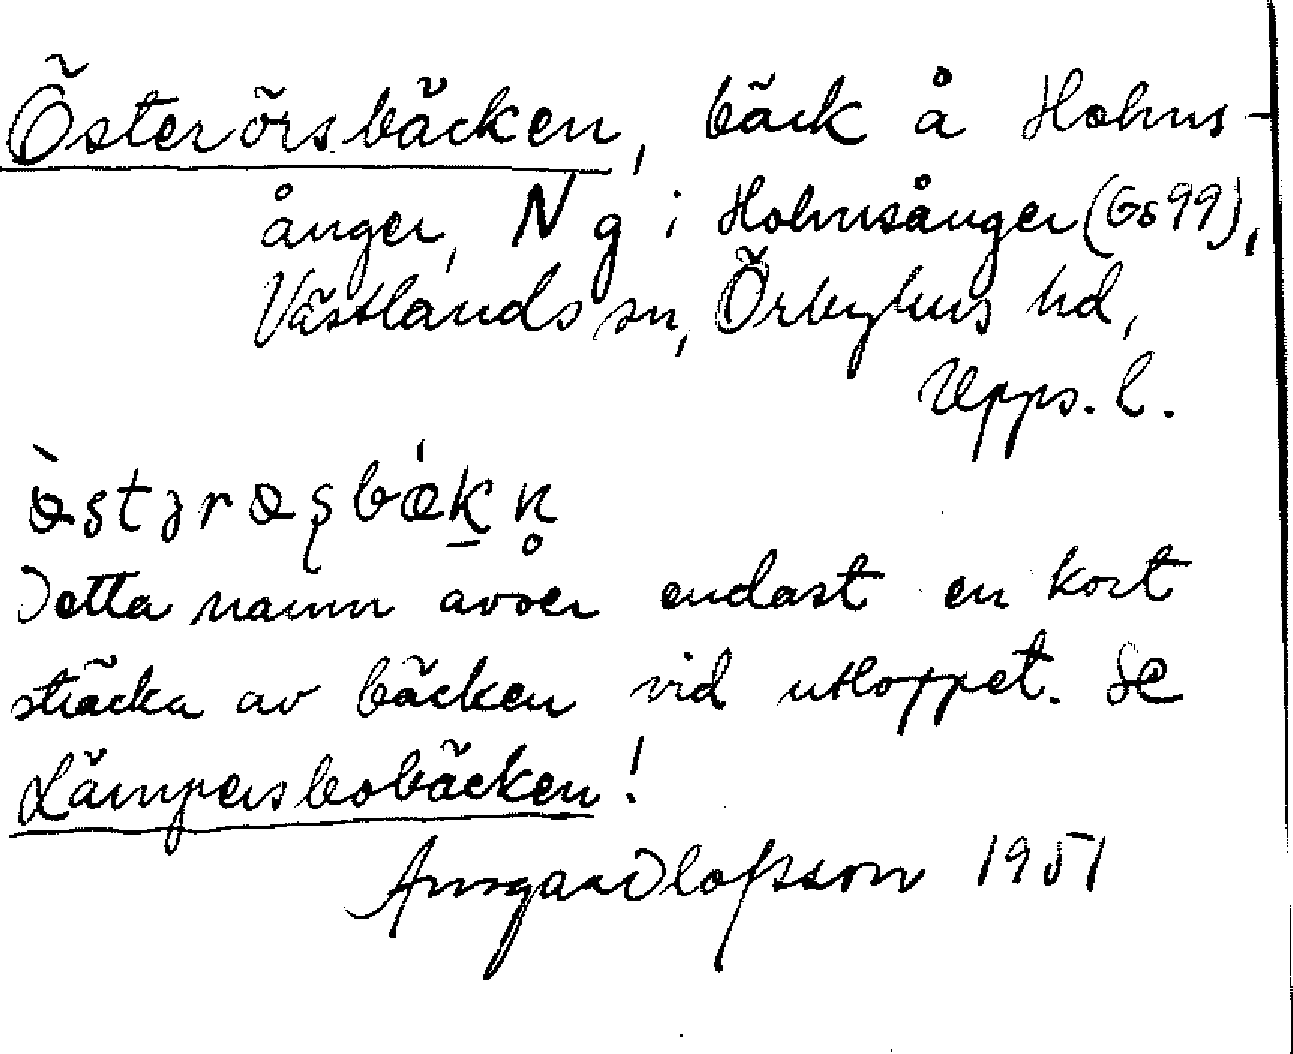 Österörsbäcken, bäck å Holms-
ånger, N g i Holmsånger (Gs 99),
Västlands sn, Örbyhus hd,
Upps. l.
Detta namn avser endast en kort
sträcka av bäcken vid utloppet. Se
Lämpersbobäcken!
Ansgar Olofsson 1951